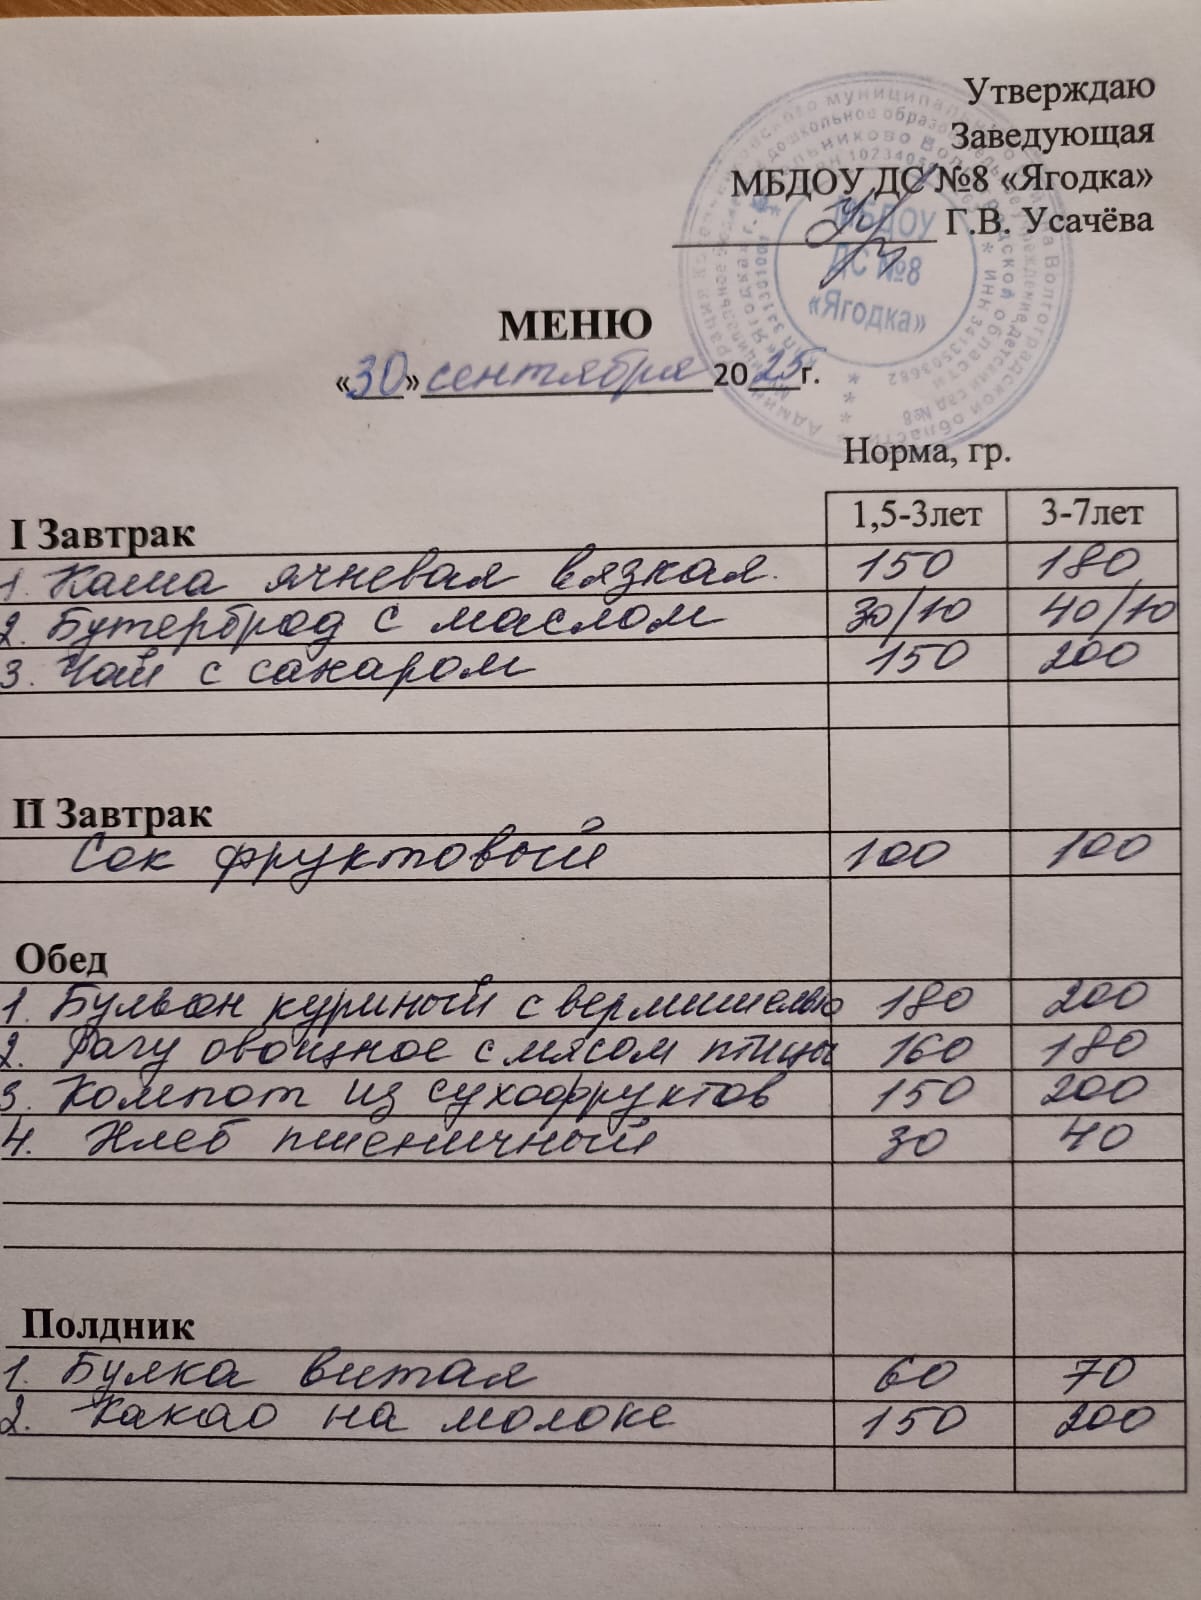 Утверждаю
Заведующая
МБДОУ ДС №8 «Ягодка»
Г.В. Усачёва
МБДОУ
ДС №8
«Ягодка»
МЕНЮ
«30» сентября 2025 г.
Норма, гр.
I Завтрак 1,5-3лет 3-7лет
1. Каша ячневая вязкая. 150 180
2. Бутерброд с маслом 30/10 40/10
3. Чай с сахаром 150 200
II Завтрак
Сок фруктовый 100 100
Обед
1. Бульон куриный с вермишелью 180 200
2. Рагу овощное с мясом птицы 160 180
3. Компот из сухофруктов 150 200
4. Хлеб пшеничный 30 40
Полдник
1. Булка витая 60 70
2. Какао на молоке 150 200